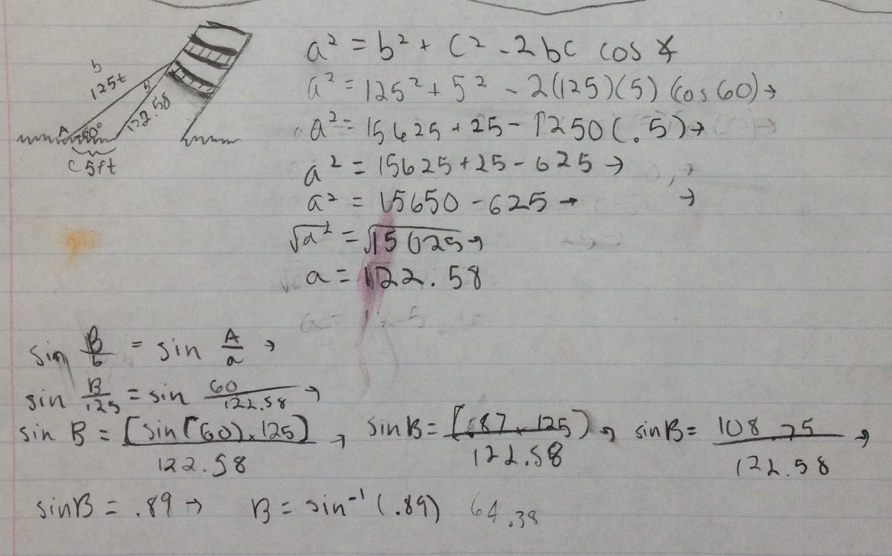 b
125t
B
122.58
A 60°
C 5ft
a² = b² + C² - 2bc cos ∡
a² = 125² + 5² - 2(125)(5) (cos 60) →
a² = 15625 + 25 - 1250(.5) →
a² = 15625 + 25 - 625 →
a² = 15650 - 625 → →
√a² = √15025 →
a = 122.58
sin B/b = sin A/a →
sin B/125 = sin 60/122.58 →
sin B = [sin(60) × 125]/122.58 , sinB = [.87 × 125)/122.58 → sinB = 108.75/122.58 →
sinB = .89 → B = sin⁻¹ (.89) 64.38